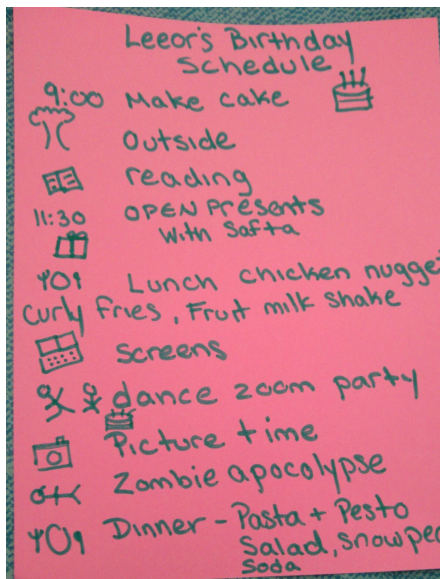 Leeor's Birthday
Schedule
9:00 Make cake
Outside
reading
11:30 OPEN Presents
with Safta
Lunch chicken nugget
Curly fries, Fruit milk shake
screens
dance zoom party
Picture time
Zombie apocolypse
Dinner - Pasta + Pesto
Salad, snow pea
Soda